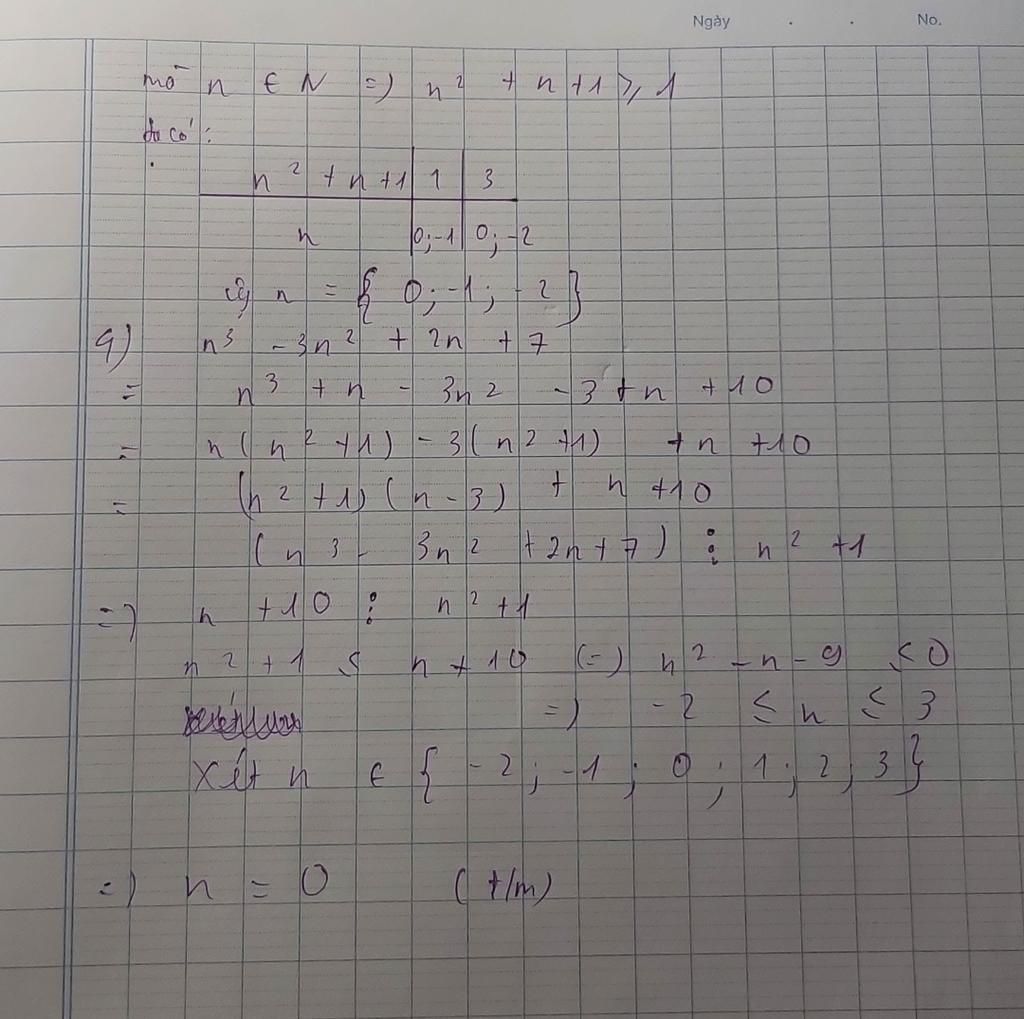 Ngày . . No.
mà n ∈ N => n² + n + 1 ⩾ 1
ta có:
n² + n + 1 | 1 | 3
n | 0; -1 | 0; -2
n = { 0; -1; -2 }
n³ - 3n² + 2n + 7
= n³ + n - 3n² - 3 + n + 10
= n(n² + 1) - 3(n² + 1) + n + 10
= (n² + 1)(n - 3) + n + 10
(n³ - 3n² + 2n + 7) ⋮ n² + 1
=> n + 10 ⋮ n² + 1
n² + 1 ≤ n + 10 (=) n² - n - 9 ≤ 0
=> -2 ≤ n ≤ 3
Xét n ∈ { -2; -1; 0; 1; 2; 3 }
=> n = 0 (t/m)